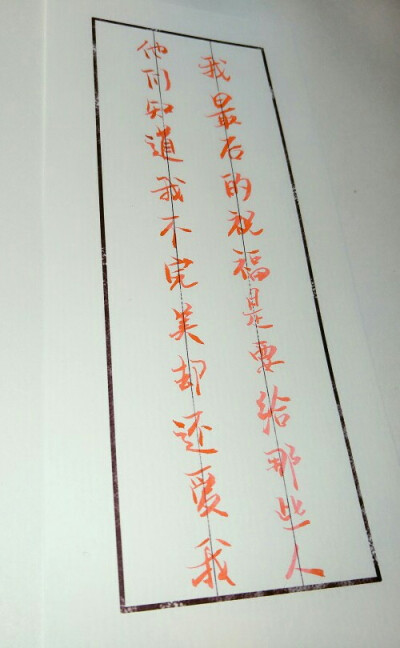 我最后的祝福是要给那些人
他们知道我不完美却还爱我